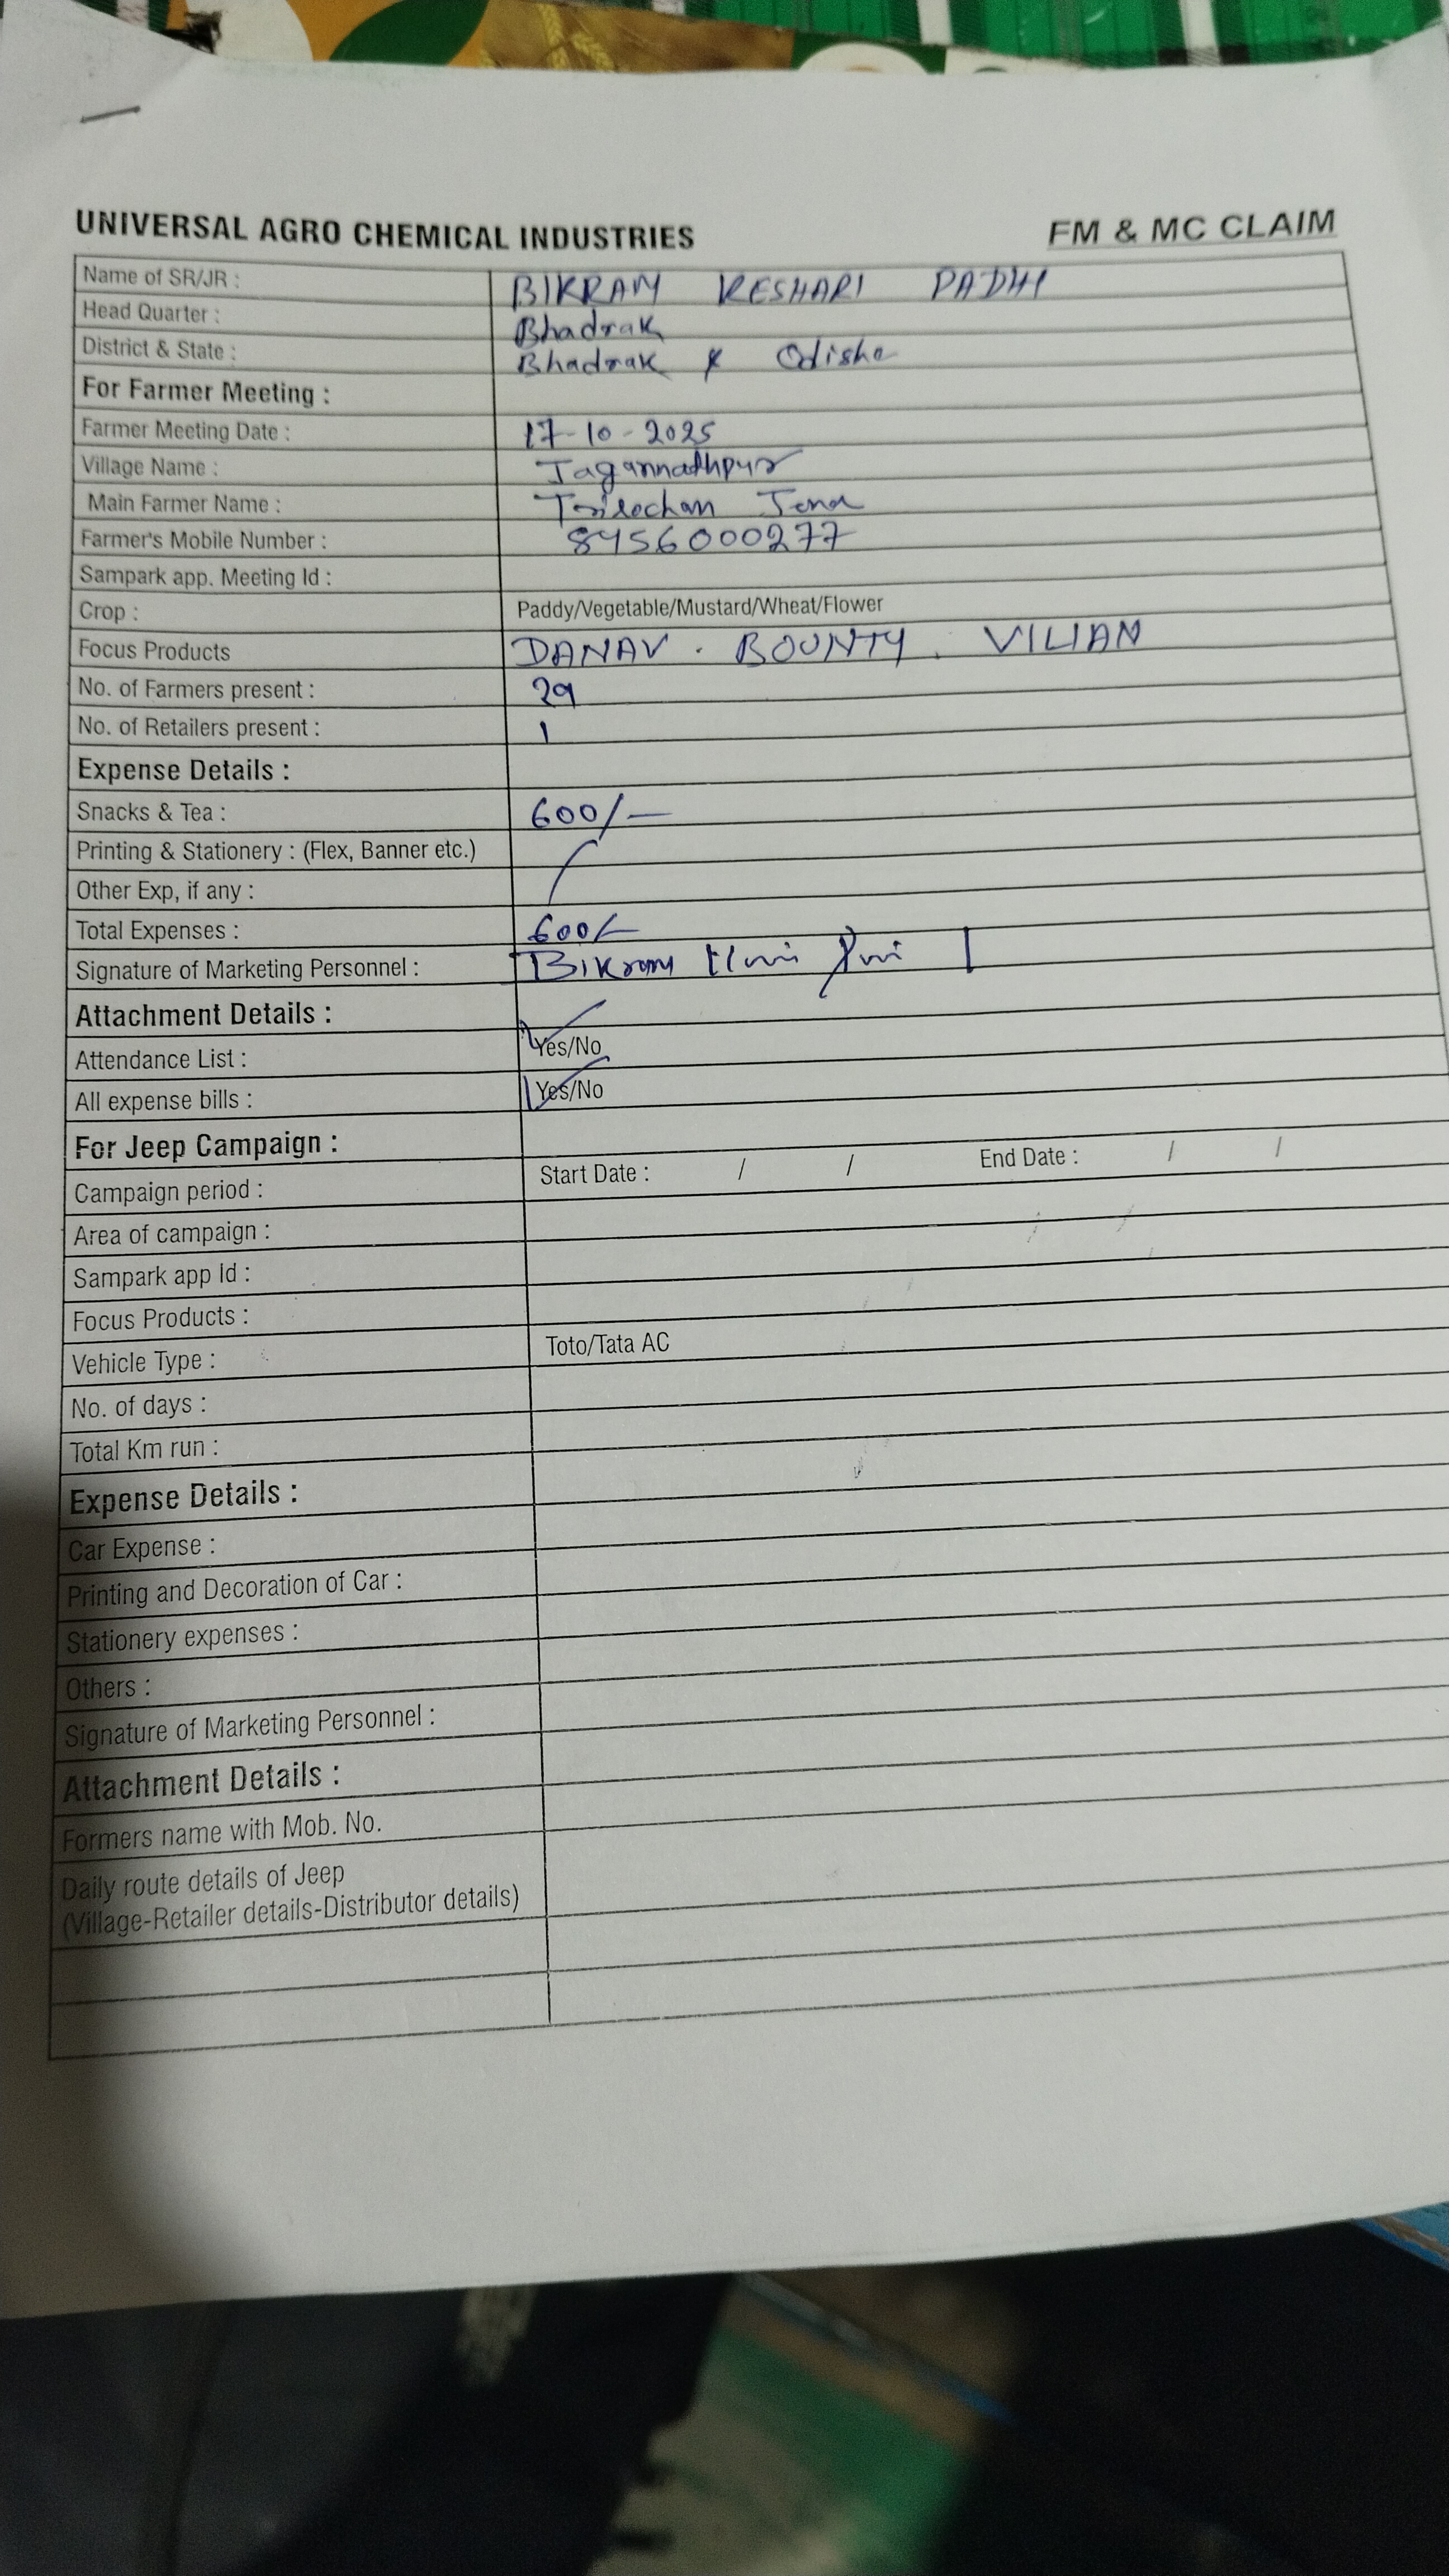 UNIVERSAL AGRO CHEMICAL INDUSTRIES FM & MC CLAIM
Name of SR/JR : BIKRAM KESHARI PADHI
Head Quarter : Bhadrak
District & State : Bhadrak & Odisha
For Farmer Meeting :
Farmer Meeting Date : 17-10-2025
Village Name : Jagannathpur
Main Farmer Name : Trilochan Jena
Farmer's Mobile Number : 8456000277
Sampark app. Meeting Id :
Crop : Paddy/Vegetable/Mustard/Wheat/Flower
Focus Products DANAV . BOUNTY . VILIAN
No. of Farmers present : 29
No. of Retailers present : 1
Expense Details :
Snacks & Tea : 600/-
Printing & Stationery : (Flex, Banner etc.)
Other Exp, if any :
Total Expenses : 600/-
Signature of Marketing Personnel : Bikram
Attachment Details :
Attendance List : Yes/No
All expense bills : Yes/No
For Jeep Campaign :
Campaign period : Start Date : / / End Date : / /
Area of campaign :
Sampark app Id :
Focus Products :
Vehicle Type : Toto/Tata AC
No. of days :
Total Km run :
Expense Details :
Car Expense :
Printing and Decoration of Car :
Stationery expenses :
Others :
Signature of Marketing Personnel :
Attachment Details :
Formers name with Mob. No.
Daily route details of Jeep
(Village-Retailer details-Distributor details)